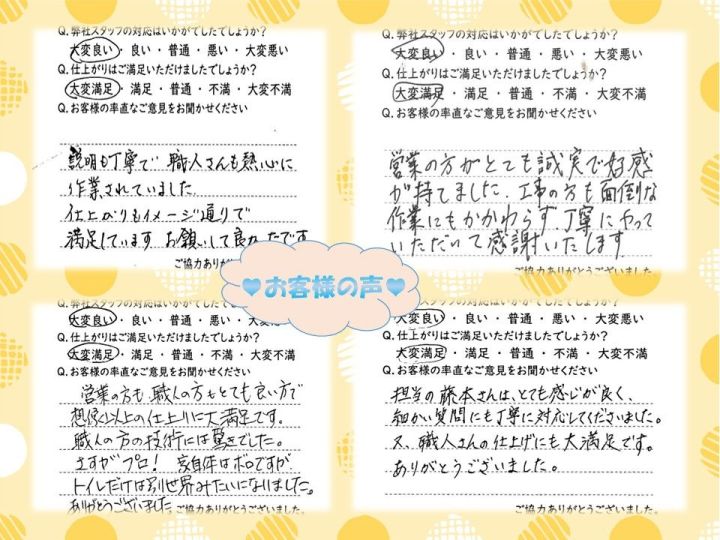 Q. 弊社スタッフの対応はいかがでしたでしょうか?
大変良い ・ 良い ・ 普通 ・ 悪い ・ 大変悪い
Q. 仕上がりはご満足いただけましたでしょうか?
大変満足 ・ 満足 ・ 普通 ・ 不満 ・ 大変不満
Q. お客様の率直なご意見をお聞かせください
説明も丁寧で 職人さんも熱心に
作業されていました
仕上がりもイメージ通りで
満足しています お願いして良かったです
ご協力ありが
Q. 弊社スタッフの対応はいかがでしたでしょうか?
大変良い ・ 良い ・ 普通 ・ 悪い ・ 大変悪い
Q. 仕上がりはご満足いただけましたでしょうか?
大変満足 ・ 満足 ・ 普通 ・ 不満 ・ 大変不満
Q. お客様の率直なご意見をお聞かせください
営業の方がとても誠実で好感
が持てました。工事の方も面倒な
作業にもかかわらず、丁寧にやって
いただいて感謝いたします
ご協力ありがとうございました。
お客様の声
Q. 弊社スタッフの対応はいかがでしたでしょうか?
大変良い ・ 良い ・ 普通 ・ 悪い ・ 大変
Q. 仕上がりはご満足いただけましたでしょうか?
大変満足 ・ 満足 ・ 普通 ・ 不満 ・ 大変不満
Q. お客様の率直なご意見をお聞かせください
営業の方も、職人の方もとても良い方で
想像以上の仕上りに大満足です。
職人の方の技術には驚きでした。
さすがプロ! 家自体はボロですが
トイレだけは別世界みたいになりました。
ありがとうございました
ご協力ありがとうございました。
Q. 弊社スタッフの対応はいかがでしたでしょうか?
大変良い ・ 良い ・ 普通 ・ 悪い ・ 大変悪い
Q. 仕上がりはご満足いただけましたでしょうか?
大変満足 ・ 満足 ・ 普通 ・ 不満 ・ 大変不満
Q. お客様の率直なご意見をお聞かせください
担当の藤本さんは、とても感じが良く、
細かい質問にも丁寧に対応してくださいました。
又、職人さんの仕上げにも大満足です。
ありがとうございました。
ご協力ありがとうございました。